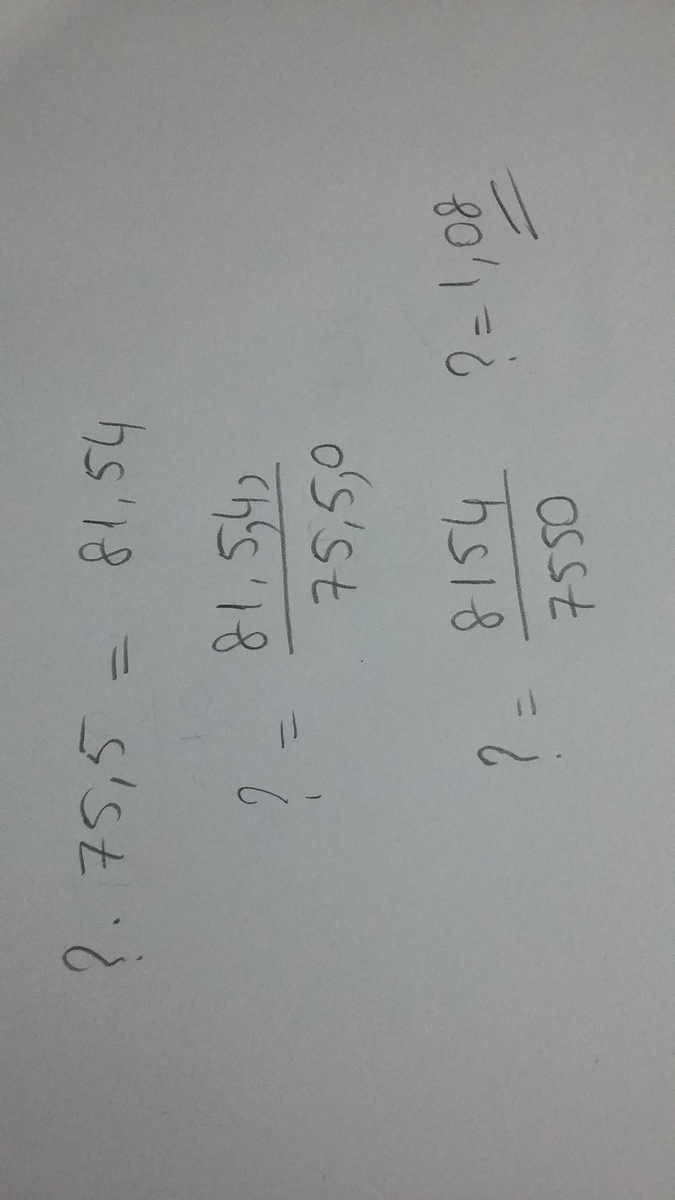 ? . 75,5 = 81,54
? = 81,54, / 75,5,0
? = 8154 / 7550 ? = 1,08